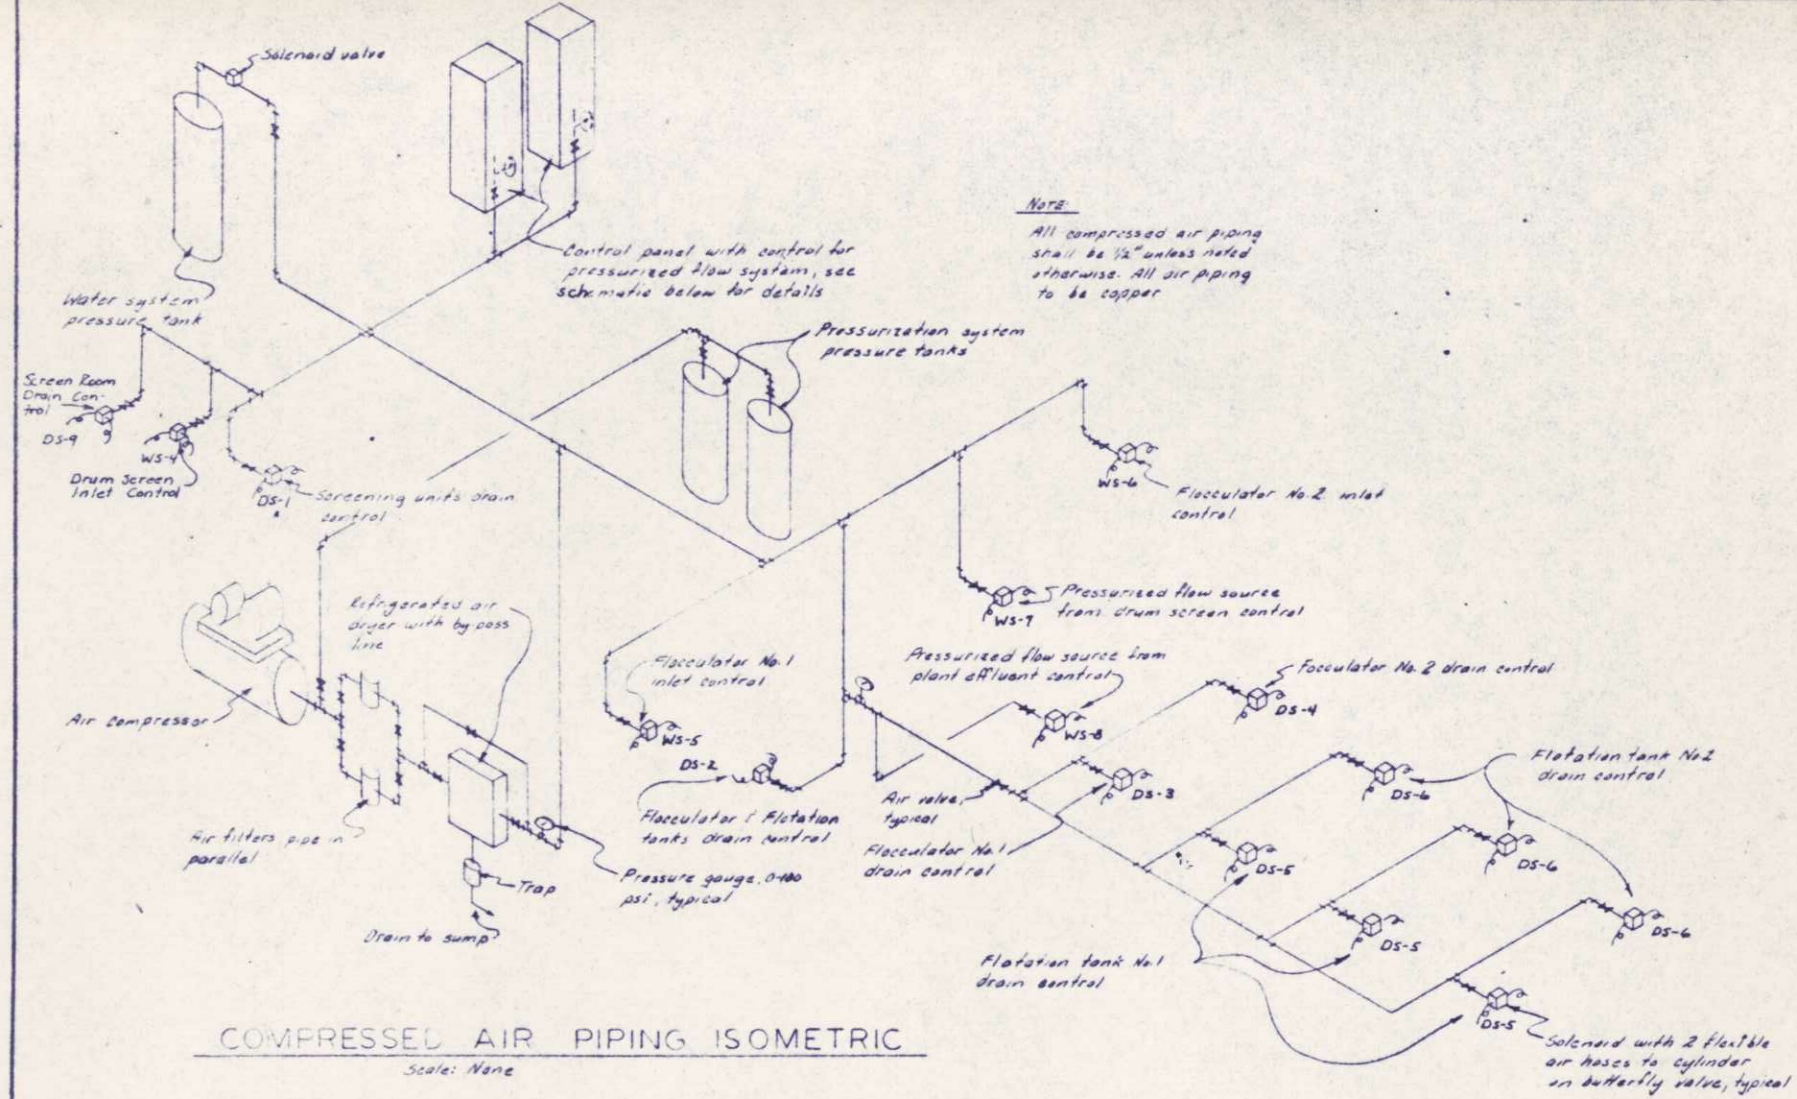 Solenoid valve
Control panel with control for
pressurized flow system, see
schematic below for details
NOTE:
All compressed air piping
shall be 1/2" unless noted
otherwise. All air piping
to be copper
Water system
pressure tank
Pressurization system
pressure tanks
Screen Room
Drain Con-
trol
DS-9
WS-4
Drum Screen
Inlet Control
DS-1
Screening units drain
control
WS-6
Flocculator No. 2 inlet
control
Refrigerated air
dryer with by-pass
line
WS-7
Pressurized flow source
from drum screen control
Air compressor
Flocculator No. 1
inlet control
WS-5
Pressurized flow source from
plant effluent control
WS-8
Focculator No. 2 drain control
DS-4
DS-2
Flocculator & Flotation
tanks drain control
Air valve,
typical
DS-3
Flocculator No. 1
drain control
Flotation tank No. 2
drain control
DS-6
DS-5
DS-6
DS-5
DS-6
DS-5
Air filters pipe in
parallel
Trap
Pressure gauge, 0-100
psi, typical
Drain to sump
Flotation tank No. 1
drain control
Solenoid with 2 flexible
air hoses to cylinder
on butterfly valve, typical
COMPRESSED AIR PIPING ISOMETRIC
Scale: None